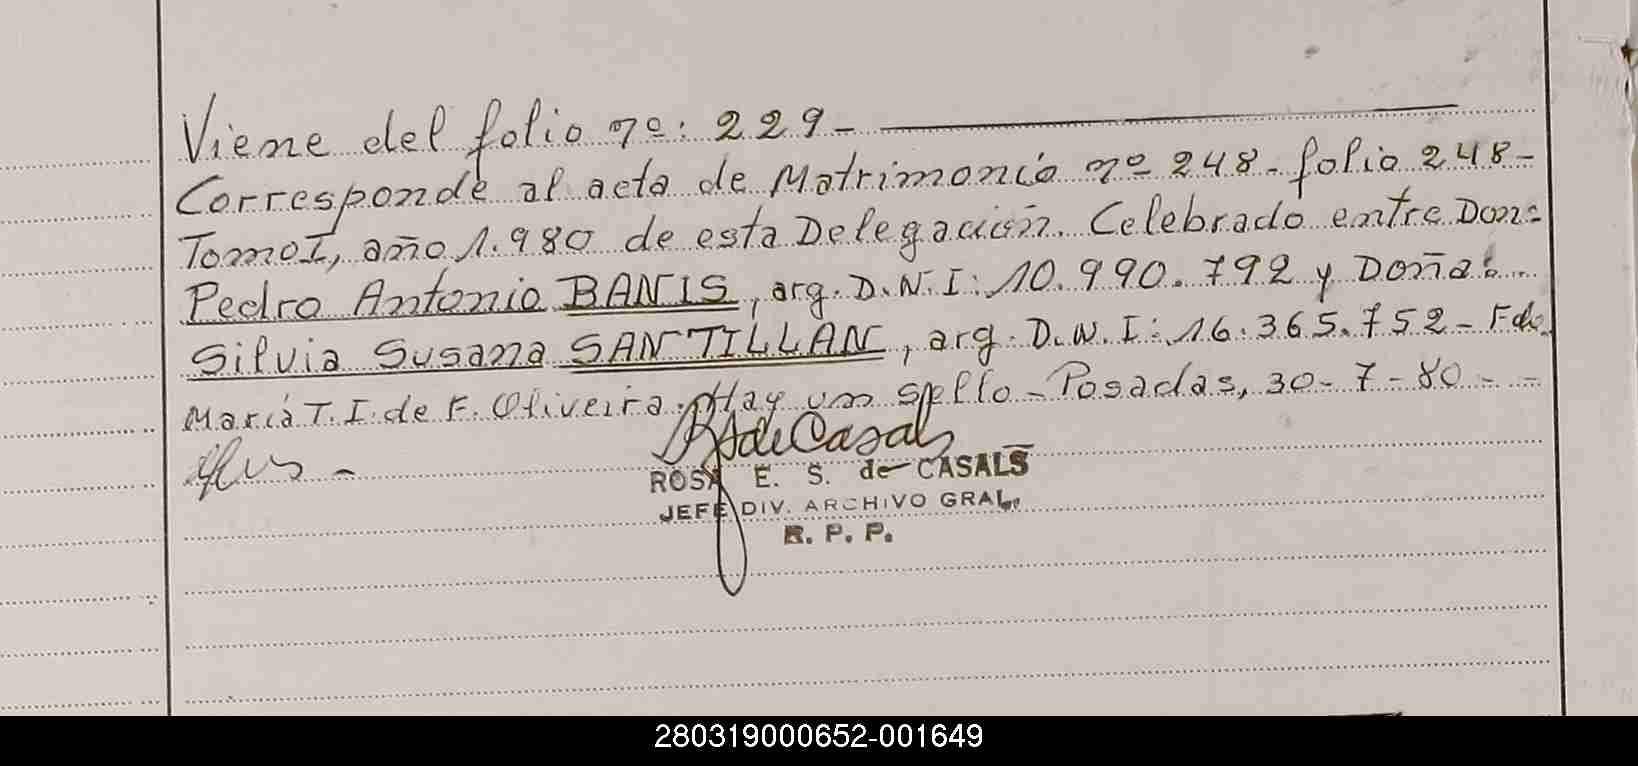 Viene del folio nº: 229-
Corresponde al acta de Matrimonio nº 248- folio 248-
Tomo I, año 1.980 de esta Delegación. Celebrado entre Don:
Pedro Antonio BANIS, arg. D.N.I: 10.990.792 y Doña:
Silvia Susana SANTILLAN, arg. D.N.I: 16.365.752- Fdo.
María T. I. de F. Oliveira. Hay un sello- Posadas, 30-7-80--
RSdeCasals
ROSA E. S. de CASALS
JEFE DIV. ARCHIVO GRAL.
R. P. P.
280319000652-001649